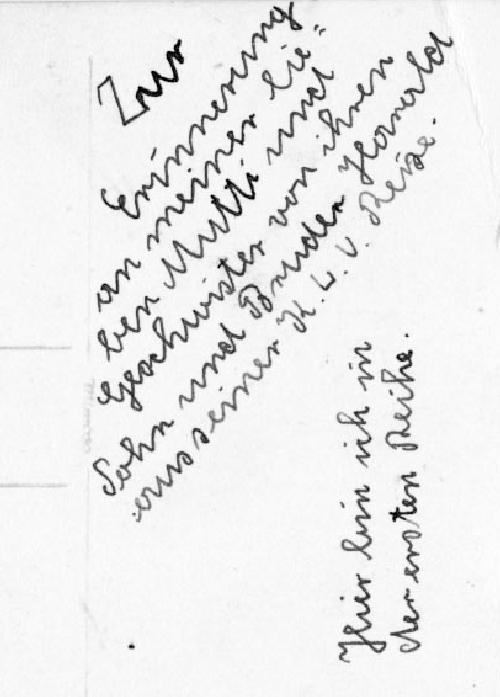 Zur
Erinnerung
an meiner Lie=
ben Mutti und
Geschwister von ihren
Sohn und Bruder Harald
aus seiner K. L. V. Reise.
Hier bin ich in
der ersten Reihe.